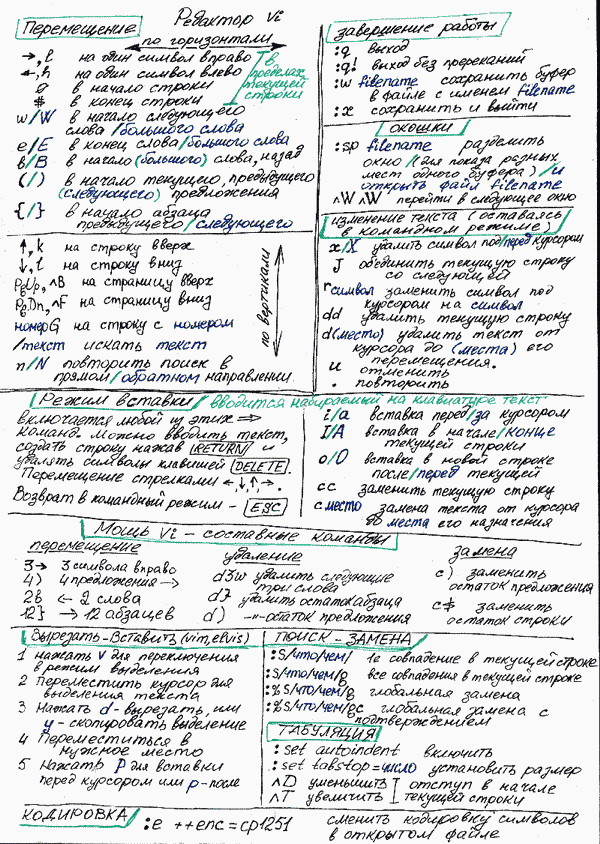 Редактор Vi
Перемещение
по горизонтали
→, l на один символ вправо
←, h на один символ влево
в пределах текущей строки
0 в начало строки
$ в конец строки
w/W в начало следующего
слова/большого слова
e/E в конец слова/большого слова
b/B в начало (большого) слова, назад
(/) в начало текущего, предыдущего
(следующего) предложения
{/} в начало абзаца
предыдущего/следующего
↑, k на строку вверх
↓, l на строку вниз
PgUp, ^B на страницу вверх
PgDn, ^F на страницу вниз
номерG на строку с номером
/текст искать текст
n/N повторить поиск в
прямом/обратном направлении
по вертикали
завершение работы
:q выход
:q! выход без пререканий
:w filename сохранить буфер
в файле с именем filename
:x сохранить и выйти
окошки
:sp filename разделить
окно/(для показа разных
мест одного буфера)/и
открыть файл filename
^W^W перейти в следующее окно
изменение текста (оставаясь
в командном режиме)
x/X удалить символ под/перед курсором
J объединить текущую строку
со следующей
rсимвол заменить символ под
курсором на символ
dd удалить текущую строку
d(место) удалить текст от
курсора до (места) его
перемещения.
u отменить
. повторить
Режим вставки/вводится набираемый на клавиатуре текст
включается любой из этих ⇒
команд. Можно вводить текст,
создать строку нажав RETURN и
удалять символы клавишей DELETE.
Перемещение стрелками ←↓↑→.
Возврат в командный режим - ESC
i/a вставка перед/за курсором
I/A вставка в начале/конце
текущей строки
o/O вставка в новой строке
после/перед текущей
cc заменить текущую строку
cместо замена текста от курсора
до места его назначения
Мощь Vi - составные команды
перемещение
3→ 3 символа вправо
4) 4 предложения →
2b ← 2 слова
12} → 12 абзацев
удаление
d3w удалить следующие
три слова
d} удалить остаток абзаца
d) -"- остаток предложения
замена
c) заменить
остаток предложения
c$ заменить
остаток строки
Вырезать-Вставить (vim, elvis)
1 нажать v для переключения
в режим выделения
2 Переместить курсор для
выделения текста
3 Нажать d - вырезать, или
y - скопировать выделение
4 Переместиться в
нужное место
5 Нажать P для вставки
перед курсором или p - после
ПОИСК - ЗАМЕНА
:s/что/чем/ 1е совпадение в текущей строке
:s/что/чем/g все совпадения в текущей строке
:%s/что/чем/g глобальная замена
:%s/что/чем/gc глобальная замена с
подтверждением
ТАБУЛЯЦИЯ
:set autoindent включить
:set tabstop=число установить размер
^D уменьшить отступ в начале
^T увеличить текущей строки
КОДИРОВКА
:e ++enc=cp1251
сменить кодировку символов
в открытом файле